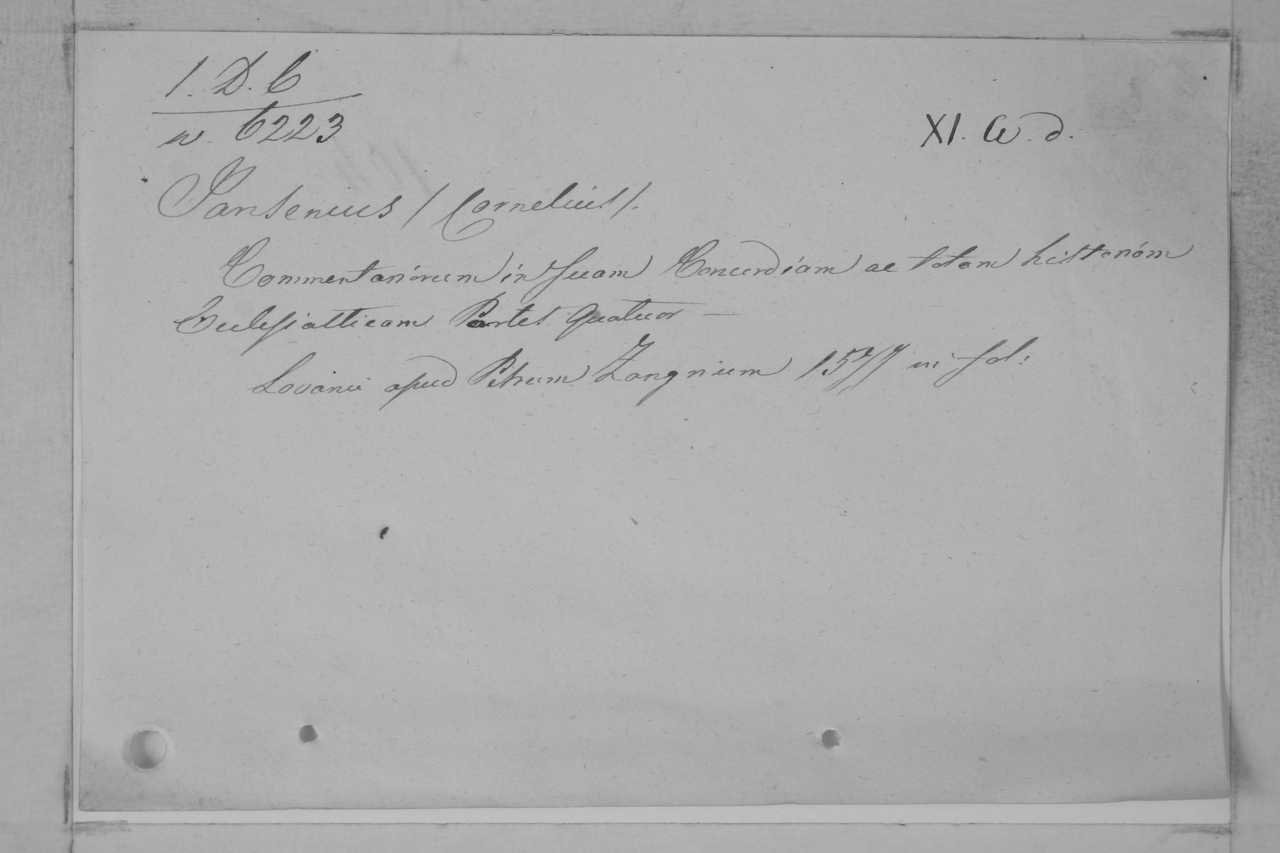 1. D. 6
n. 6223
XI. Ce. d.
Jansenius / Cornelius /.
Commentariorum in suam Concordiam ac totam historiam
Ecclesiasticam Partes Quatuor —
Lovanii apud Petrum Zangrium 1577 in fol: